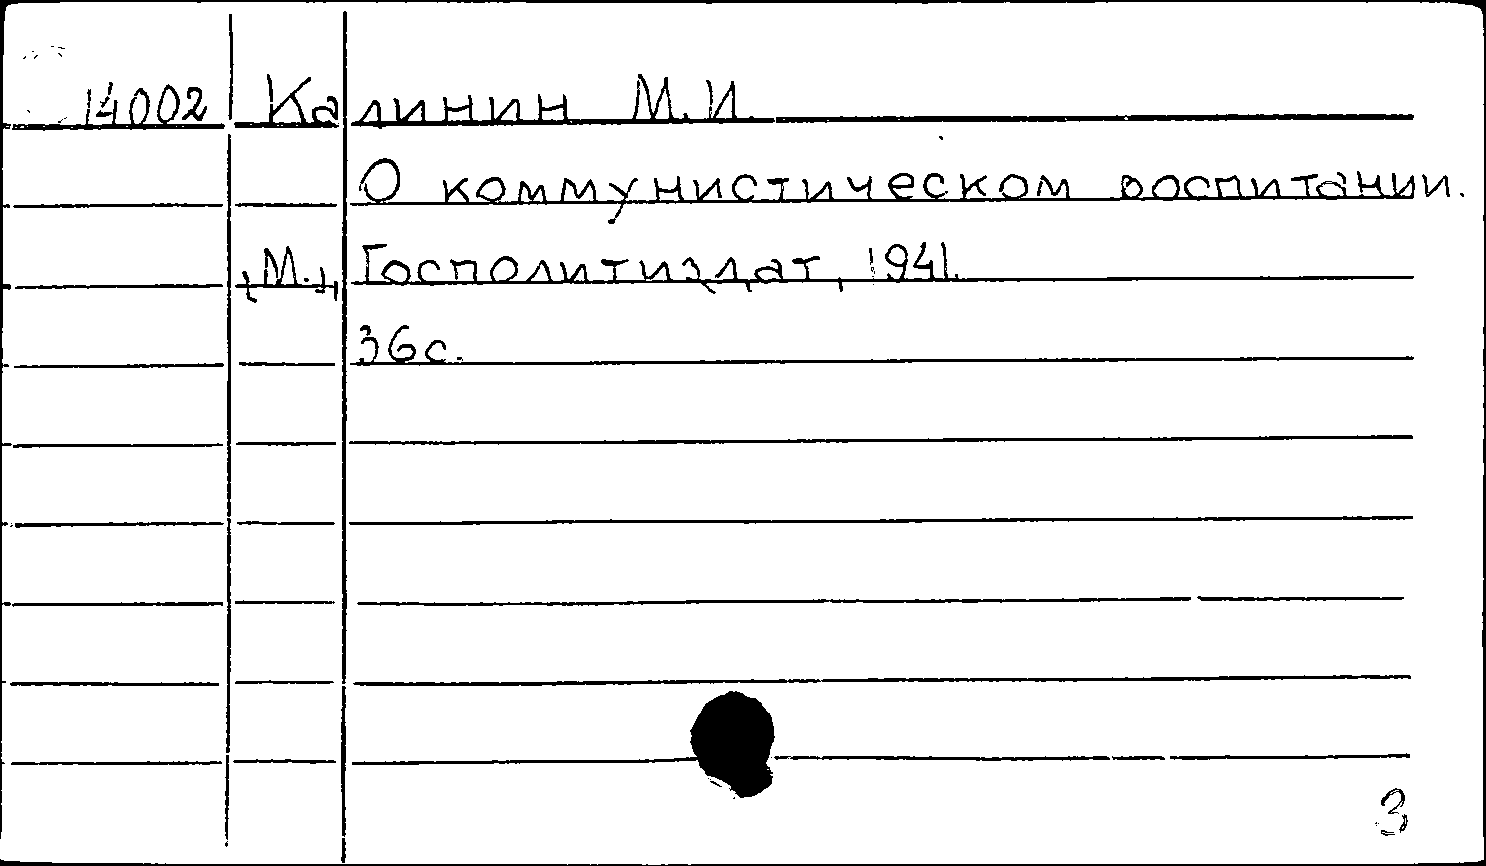 14002 Калинин М.И.
О коммунистическом воспитании.
[М.], Госполитиздат, 1941.
36с.
3